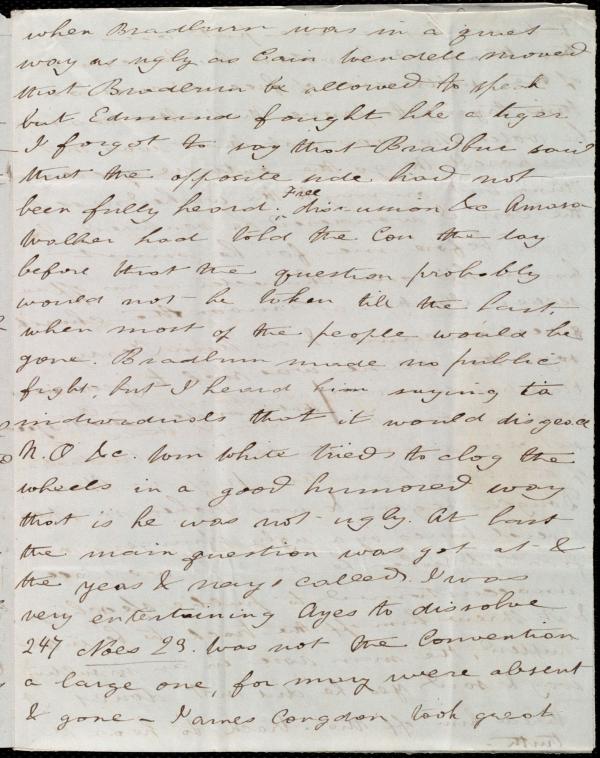 when Bradburn was in a quiet
way as ugly as Cain Wendell moved
that Bradburn be allowed to speak
but Edmund fought like a tiger
I forgot to say that Bradbur said
that the opposite side had not
been fully heard, Free discussion &c Amasa
Walker had told the Con the day
before that the question probably
would not be taken till the last,
when most of the people would be
gone. Bradburn made no public
fight, but I heard him saying to
individuals that it would disgrace
N.O &c. Wm White tried to clog the
wheels in a good humored way
that is he was not ugly. At last
the main question was got at &
the yeas & nays called. I was
very entertaining Ayes to dissolve
247 Noes 23. Was not the Convention
a large one, for many were absent
& gone - James Congdon took great